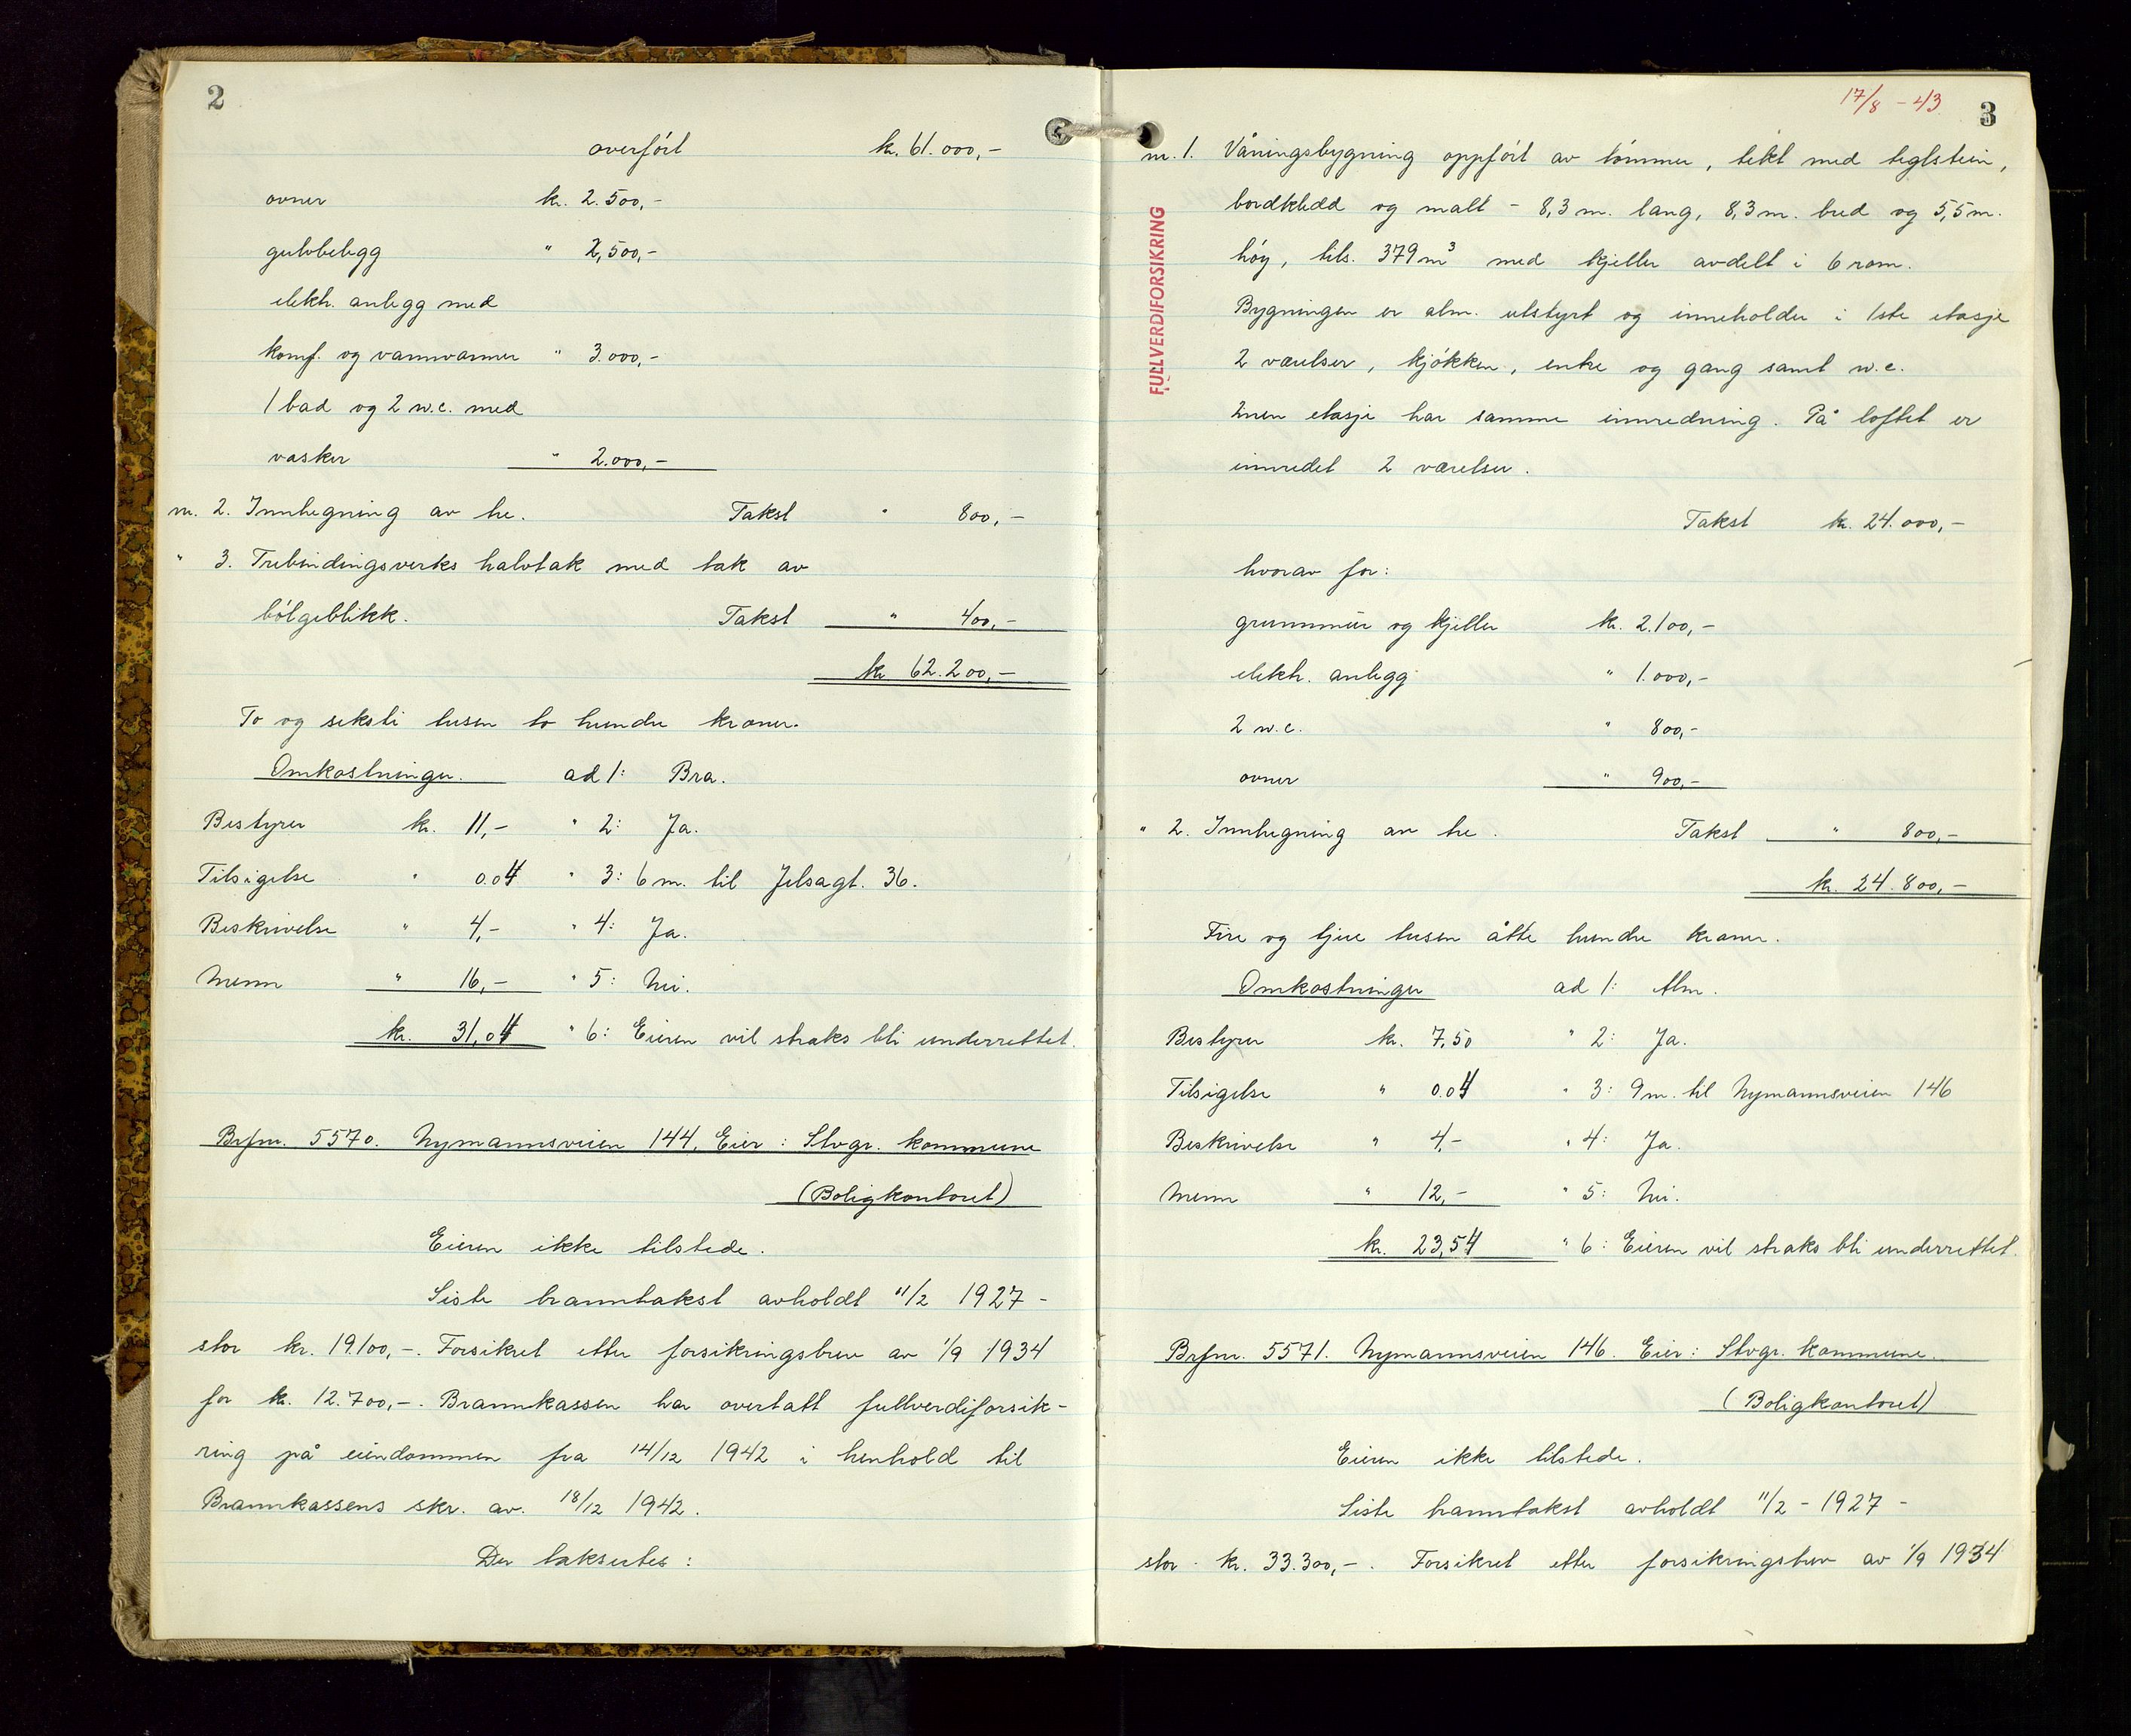 2
overført kr. 61.000,-
ovner kr. 2.500,-
gulvbelegg " 2,500,-
elektr. anlegg med
komf. og vannvarmer " 3.000,-
1 bad og 2 w.c. med
vasker " 2.000,-
nr. 2. Innhegning av tre. Takst " 800,-
" 3. Trebindingsverks halvtak med tak av
bølgeblikk. Takst " 400,-
kr 62.200,-
To og seksti tusen to hundre kroner.
Omkostninger. ad 1: Bra.
Bestyrer kr. 11,- " 2: Ja.
Tilsigelse " 0.04 " 3: 6 m. til Jelsagt. 36.
Beskrivelse " 4,- " 4: Ja.
Menn " 16,- " 5: Nei.
kr. 31,04 " 6: Eieren vil straks bli underrettet.
Brfnr. 5570. Nymannsveien 144. Eier: Stvgr. kommune
(Boligkontoret)
Eieren ikke tilstede.
Siste branntakst avholdt 11/2 1927 -
stor kr. 19.100,-. Forsikret etter forsikringsbrev av 1/9 1934
for kr. 12.700,-. Brannkassen har overtatt fullverdiforsik-
ring på eiendommen fra 14/12 1942 i henhold til
Brannkassens skr. av. 18/12 1942.
Der takseertes:
17/8 - 43
3
FULLVERDIFORSIKRING
nr. 1. Våningsbygning oppført av tømmer, tekt med teglstein,
bordkledd og malt - 8,3 m. lang, 8,3 m. bred og 5,5 m.
høy, tils. 379 m³ med kjeller avdelt i 6 rom.
Bygningen er alm. utstyrt og inneholder i 1ste etasje
2 værelser, kjøkken, entre og gang samt w.c.
2nen etasje har samme innredning. På loftet er
innredet 2 værelser.
Takst kr. 24.000,-
hvorav for:
grunnmur og kjeller kr. 2.100,-
elektr. anlegg " 1.000,-
2 w.c. " 800,-
ovner " 900,-
" 2. Innhegning av tre. Takst " 800,-
kr. 24.800,-
Fire og tjue tusen åtte hundre kroner.
Omkostninger ad 1: Alm.
Bestyrer kr. 7,50 " 2: Ja.
Tilsigelse " 0.04 " 3: 9 m. til Nymannsveien 146
Beskrivelse " 4,- " 4: Ja.
Menn " 12,- " 5: Nei.
kr. 23,54 " 6: Eieren vil straks bli underrettet.
Brfnr. 5571. Nymannsveien 146. Eier: Stvgr. kommune.
(Boligkontoret)
Eieren ikke tilstede.
Siste branntakst avholdt 11/2 - 1927 -
stor kr. 33.300,-. Forsikret etter forsikringsbrev av 1/9 1934